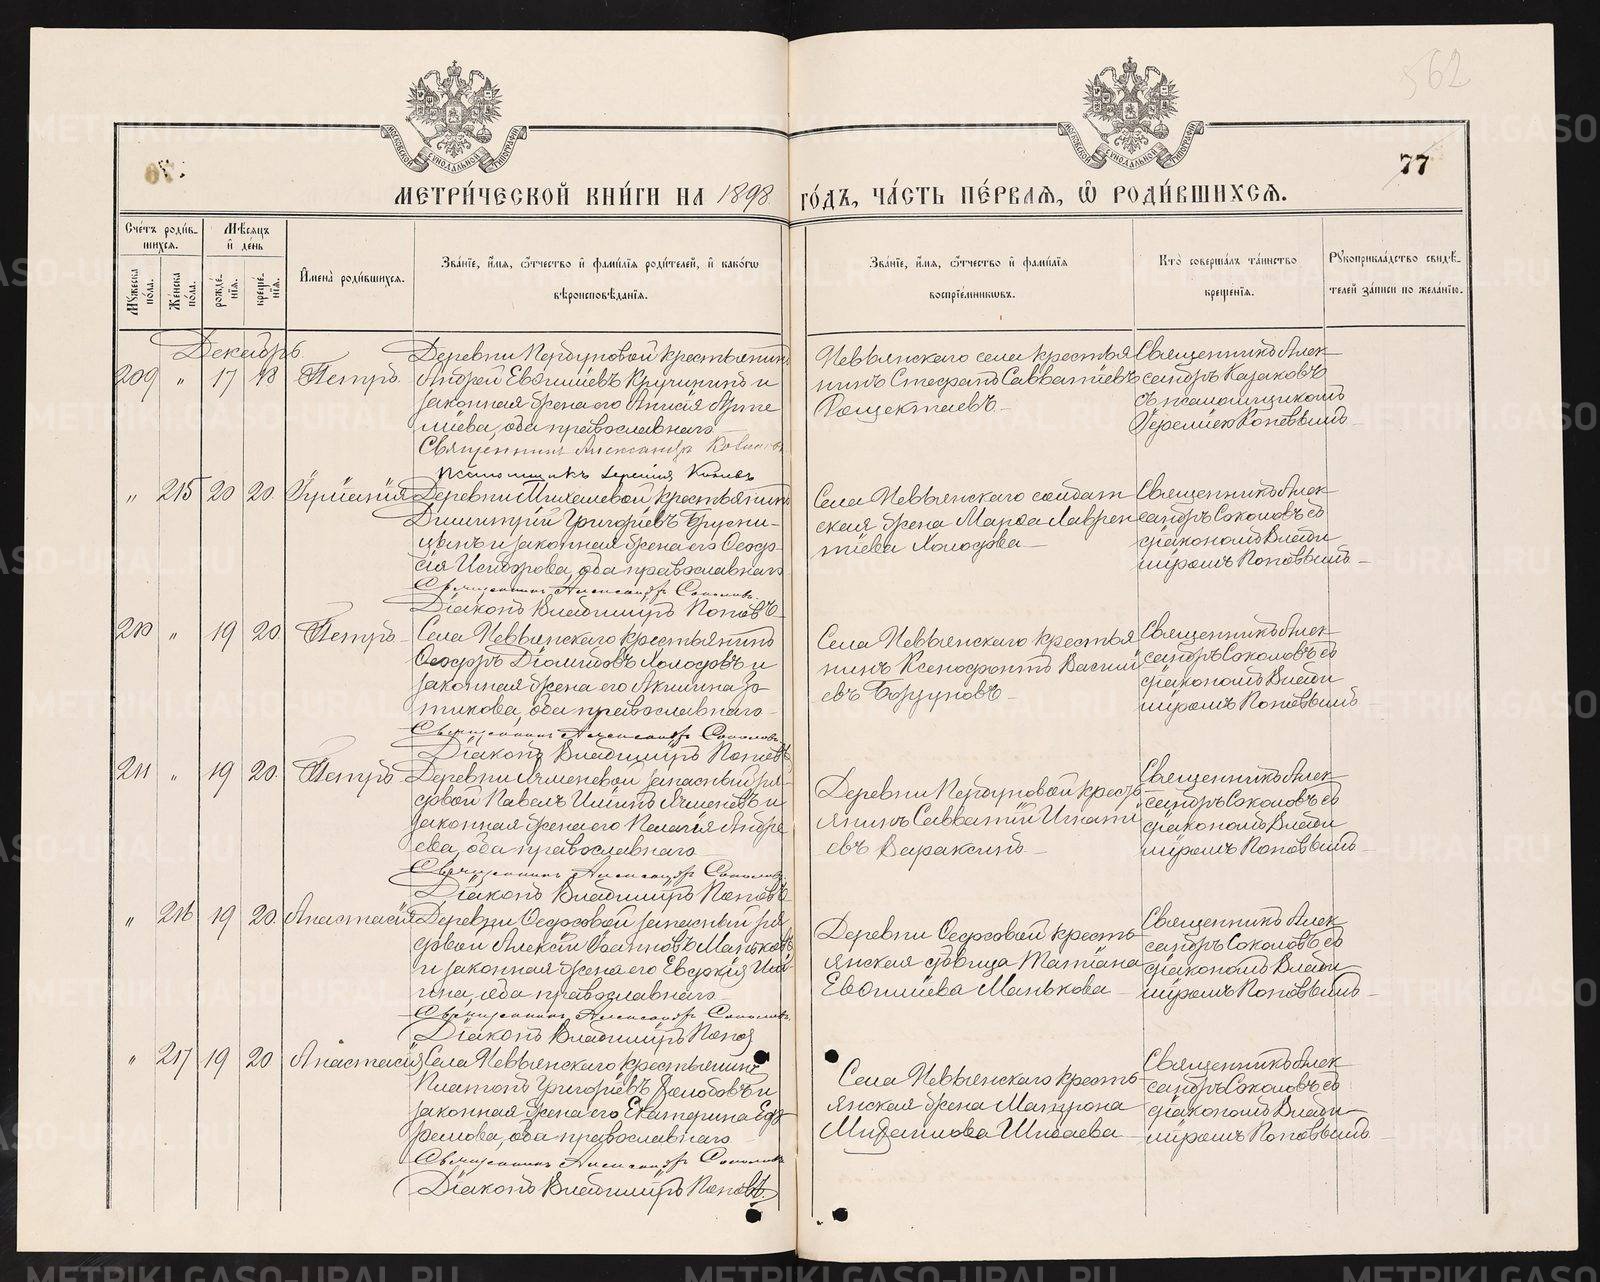 562
77
МЕТРИ́ЧЕСКОЙ КНИ́ГИ НА 1898 ГО́ДЪ, ЧА́СТЬ ПЕ́РВАѦ, Ѿ РОДИ́ВШИХСѦ.
Сче́тъ роди́в-
шихсѧ.
Мꙋжеска по́ла.
Же́нска по́ла.
Мѣ́сѧцъ и де́нь
рожде́нїѧ.
креще́нїѧ.
И҆мена̀ роди́вшихсѧ.
Зва́нїе, и҆́мѧ, ѻ҆́тчество и҆ фами́лїѧ роди́телей, и҆ како́гѡ
вѣроисповѣ́данїѧ.
Зва́нїе, и҆́мѧ, ѻ҆́тчество и҆ фами́лїѧ
воспрїе́мниковъ.
Кто̀ соверша́лъ та́инство
креще́нїѧ.
Рꙋкоприкла́дство свидѣ́-
телей за́писи по жела́нїю.
Декабрь
209 " 17 18 Петръ
Деревни крестьянинъ
Андрей Евѳиміевъ Кручининъ и
законная жена его Анисія Арте
міева, оба православнаго
Священникъ Александръ
Псаломщикъ
Невьянскаго села крестья
нинъ Стефанъ Савватіевъ
Рощектаевъ
Священникъ Алек
сандръ Казаковъ
съ псаломщикомъ
" 215 20 20
Деревни крестьянинъ
Димитрій Григоріевъ Брусни-
цынъ и законная жена его Ѳеодо-
сія Исидорова, оба православнаго
Священникъ Александръ Соколовъ
Діаконъ Владиміръ Поповъ
Села Невьянскаго солдат
ская жена Марѳа Лаврен
тіева Холодова
Священникъ Алек
сандръ Соколовъ съ
діакономъ Влади
міромъ Поповымъ
210 " 19 20 Петръ
Села Невьянскаго крестьянинъ
Ѳеодоръ Діомидовъ Холодовъ и
законная жена его Акилина
оба православнаго
Священникъ Александръ Соколовъ
Діаконъ Владиміръ Поповъ
Села Невьянскаго крестья
нинъ Ксенофонтъ Василі
евъ
Священникъ Алек
сандръ Соколовъ съ
діакономъ Влади
міромъ Поповымъ
211 " 19 20 Петръ
Деревни Ячменевой запасный ря-
довой Павелъ Ячменевъ и
законная жена его Пелагія Андре
ева, оба православнаго
Священникъ Александръ Соколовъ
Діаконъ Владиміръ Поповъ
Деревни крестъ
янинъ Савватій Игнаті
евъ Вараксинъ
Священникъ Алек
сандръ Соколовъ съ
діакономъ Влади
міромъ Поповымъ
" 216 19 20 Анастасія
Деревни Ѳедосовой запасный ря-
довой Алексій Маньковъ
и законная жена его Евдокія
оба православнаго
Священникъ Александръ Соколовъ
Діаконъ Владиміръ Поповъ
Деревни Ѳедосовой кресть
янская дѣвица Татіана
Евѳиміева Манькова
Священникъ Алек
сандръ Соколовъ съ
діакономъ Влади
міромъ Поповымъ
" 217 19 20 Анастасія
Села Невьянскаго крестьянинъ
Платонъ Григоріевъ и
законная жена его Екатерина Еф
ремова, оба православнаго
Священникъ Александръ Соколовъ
Діаконъ Владиміръ Поповъ
Села Невьянскаго кресть
янская жена Матрона
Священникъ Алек
сандръ Соколовъ съ
діакономъ Влади
міромъ Поповымъ
METRIKI.GASO-URAL.RU